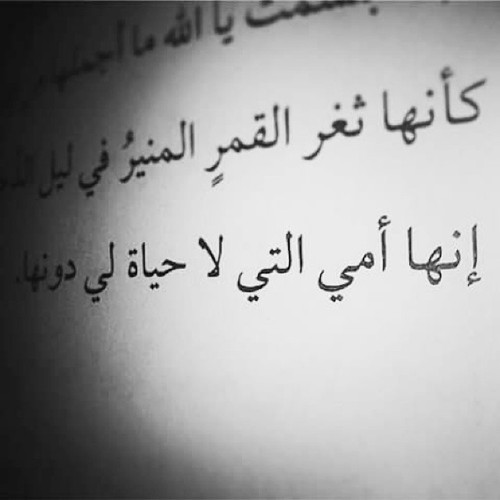 يا الله ما أجملها
كأنها ثغر القمرٍ المنيرُ في ليل
إنها أمي التي لا حياة لي دونها.